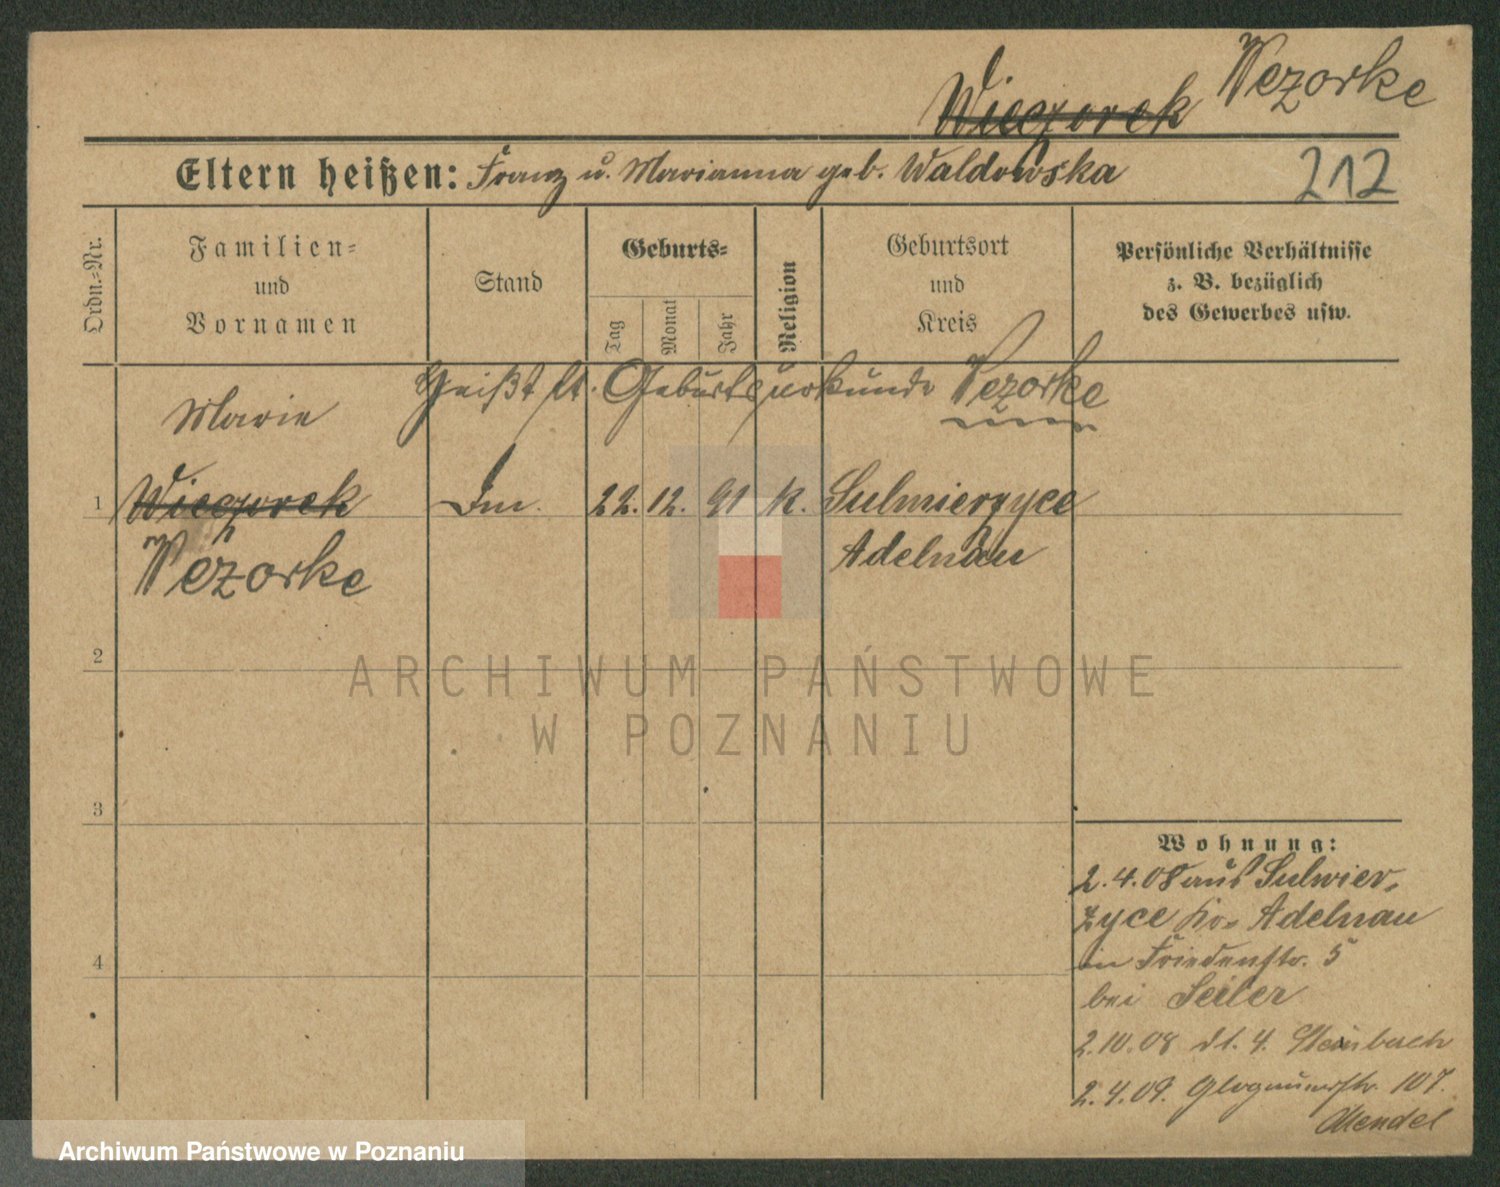 Wieczorek Wezorke
Eltern heißen: Franz u. Marianna geb. Waldowska
212
Ordn.-Nr.
Familien-
und
Vornamen
Stand
Geburts-
Tag
Monat
Jahr
Religion
Geburtsort
und
Kreis
Persönliche Verhältnisse
z. B. bezüglich
des Gewerbes usw.
Heißt lt. Geburtsurkunde Wezorke
Marie
1 Wieczorek Dm. 22. 12. 91 k. Sulmierzyce
Wezorke Adelnau
2
ARCHIWUM PAŃSTWOWE
W POZNANIU
3
Wohnung:
2.4.08 aus Sulmier-
zyce Kr. Adelnau
in Friedenstr. 5
4
bei Seiler
2.10.08 dt. 4. Steinbach
2.4.09. Glogauerstr. 107.
Mendel
Archiwum Państwowe w Poznaniu